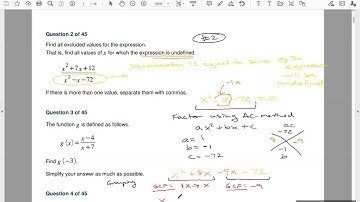 Question 2 of 45
#2
Find all excluded values for the expression.
That is, find all values of x for which the expression is undefined.
x² + 7x + 12
x² - x - 72
Denominator is equal to zero the expression will be undefined
If there is more than one value, separate them with commas.
-1x
x² - x - 72 = 0
Question 3 of 45
Factor using AC-method
The function g is defined as follows.
ax² + bx + c
g(x) = x-4 / x+7
a = 1
b = -1
c = -72
ac
-72
8 -9
-1
b
Find g(-3).
Simplify your answer as much as possible.
x² + 8x - 9x - 72
Grouping
GCF: 1x → x
GCF: -9
Question 4 of 45
x